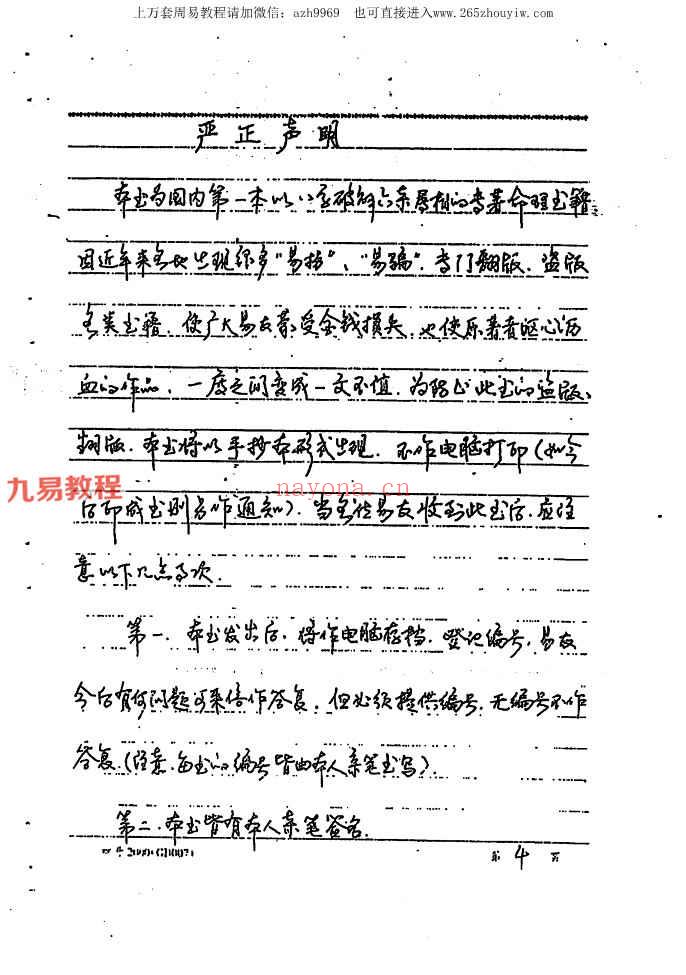 上万套周易教程请加微信：azh9969 也可直接进入www.265zhouyiw.com
严正声明
本书为国内第一本以八字破解六亲属相的专著命理书籍
因近年来各地出现很多“易扮”、“易骗”.专门翻版、盗版
各类书籍，使广大易友蒙受金钱损失，也使原著者呕心沥
血的作品，一度之间变成一文不值，为阻止此书的盗版、
翻版，本书将以手抄本形式出现，不作电脑打印(如今
后印成书则另作通知)。当各位易友收到此书后，应注
意以下几点事次.
九易教程
nayona.cn
第一、本书发出后，将作电脑存档，登记编号，易友
今后有何问题可来信作答复，但必须提供编号，无编号不作
答复(注意，每书的编号皆由本人亲笔书写)。
第二、本书皆有本人亲笔签名.
第 4 页